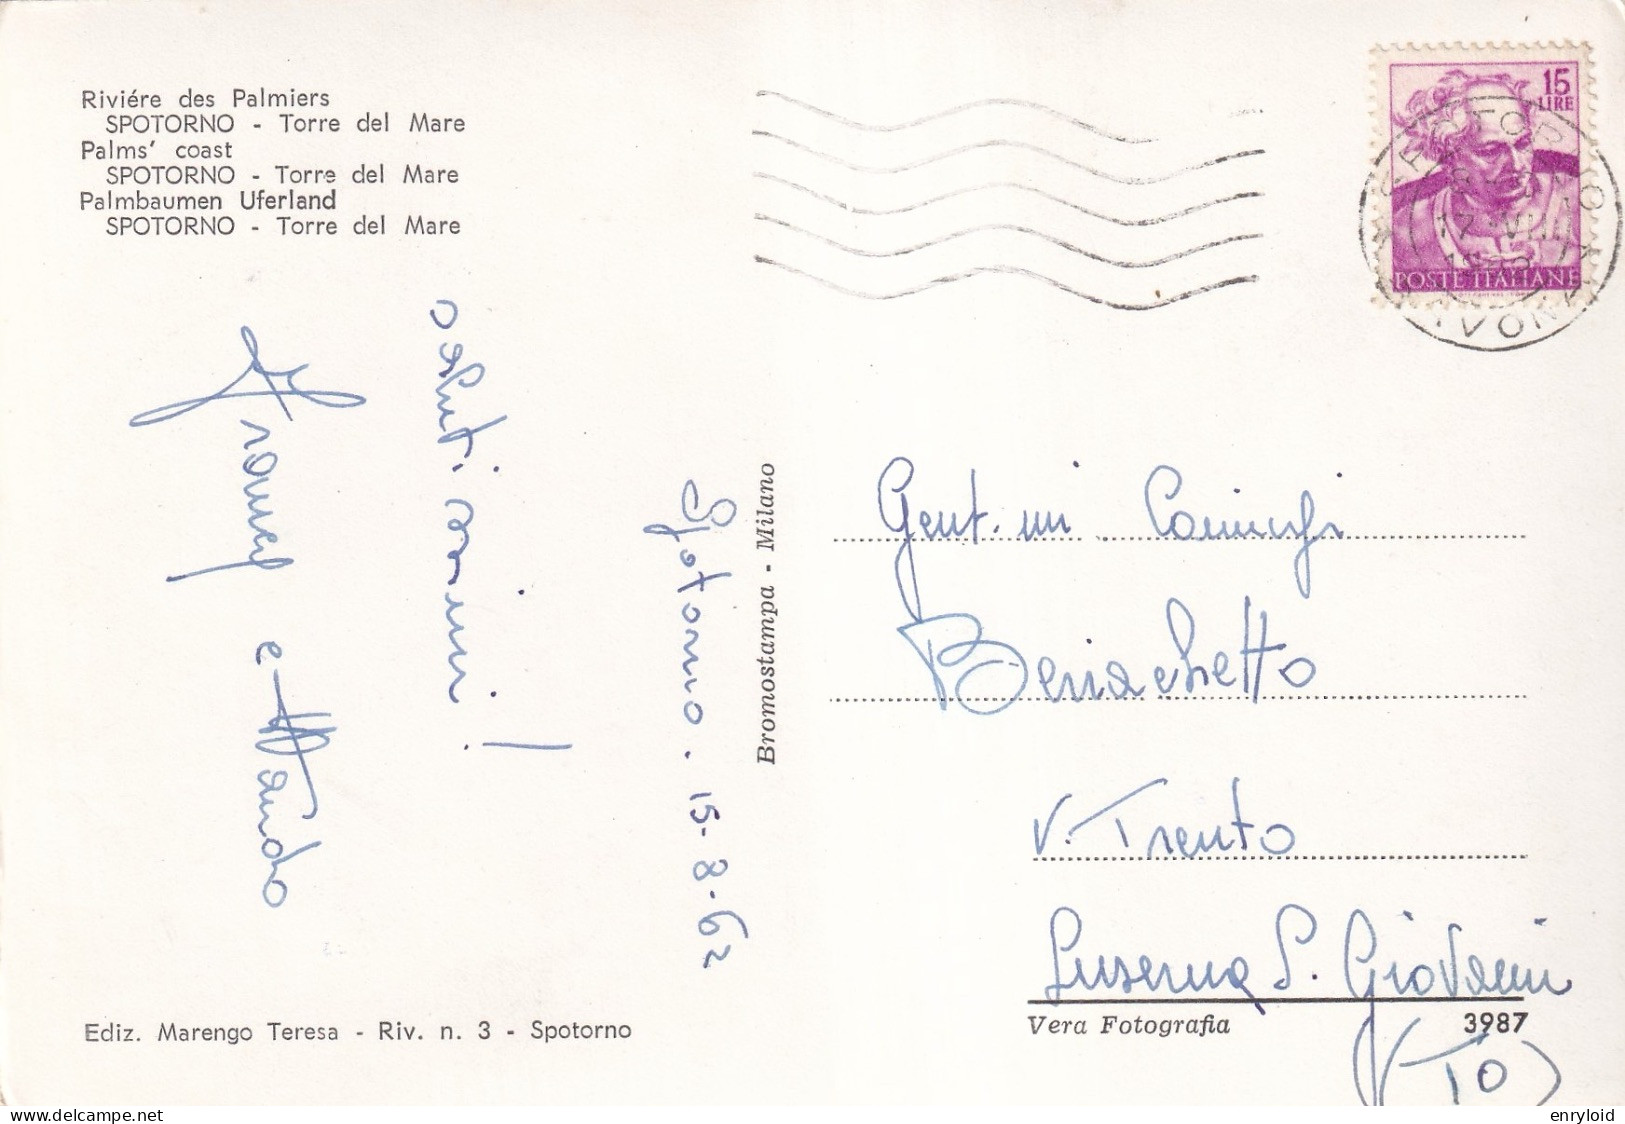 Riviére des Palmiers
SPOTORNO - Torre del Mare
Palms' coast
SPOTORNO - Torre del Mare
Palmbaumen Uferland
SPOTORNO - Torre del Mare
15
LIRE
POSTE ITALIANE
SPOTORNO
17 VIII
SAVONA
Spotorno. 15-8-62
saluti cari!
e Nando
Bromostampa - Milano
Gent.mi Coniugi
Benachetto
V. Trento
Luserna S. Giovanni
(TO)
Ediz. Marengo Teresa - Riv. n. 3 - Spotorno
Vera Fotografia
3987
enryloid